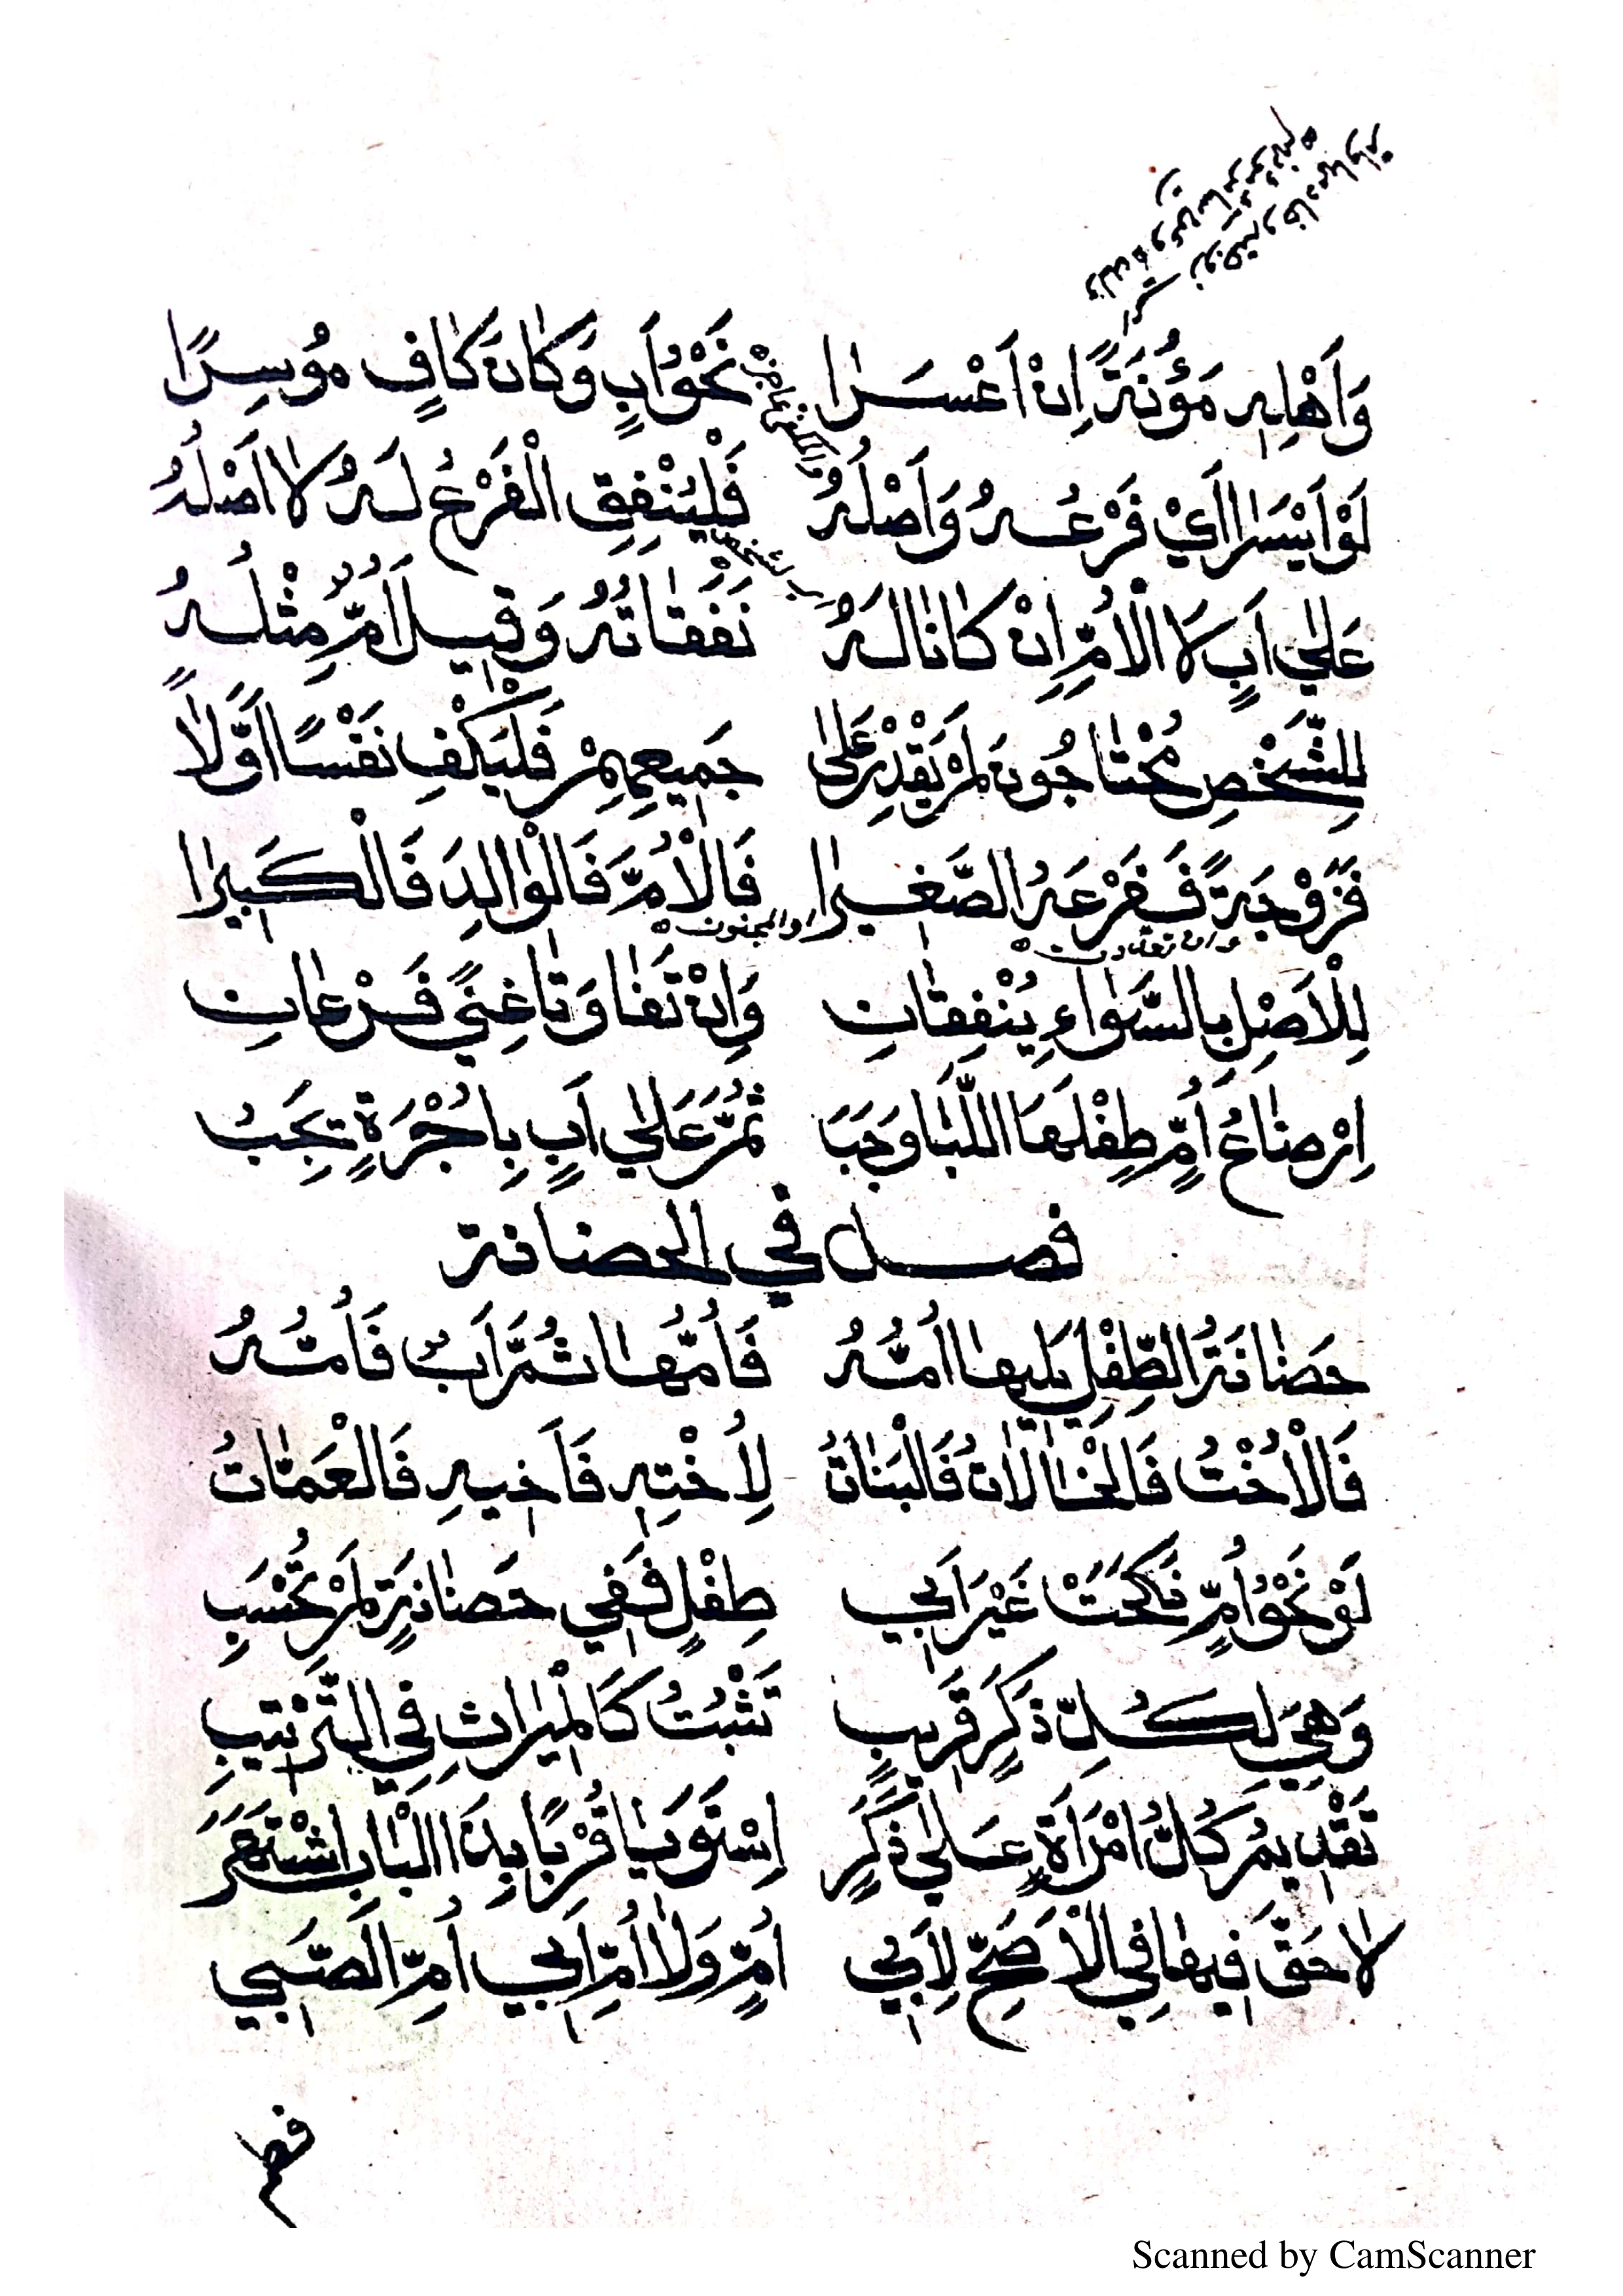 وَأَهْلِهِ مَؤُنَةً إِنْ أَعْسَرَا نَحْوُ أَبٍ وَكَانَ كَافٍ مُوسِرًا
لَوْ أَيْسَرَا أَيْ فَرْعُهُ وَأَصْلُهُ فَلْيُنْفِقِ الْفَرْعُ لَهُ لَا أَصْلُهُ
عَلَى أَبٍ لَا الْأُمِّ إِنْ كَانَا لَهُ نَفَقَاتُهُ وَقِيلَ أُمٌّ مِثْلُهُ
لِلشَّخْصِ مُحْتَاجُونَ لَمْ يَقْدِرْ عَلَى جَمِيعِهِمْ فَلْيَكْفِ نَفْسًا أَوَّلًا
فَزَوْجَةً فَفَرْعَهُ الصَّغِيرَا فَالْأُمَّ فَالْوَالِدَ فَالْكَبِيرَا
او المجنون
وان تعددت
لِلْأَصْلِ بِالسَّوَاءِ يُنْفِقَانِ وَإِنْ تَفَاوَتَا غِنًى فَرْعَانِ
اِرْضَاعُ أُمٍّ طِفْلَهَا اللِّبَا وَجَبَ ثُمَّ عَلَى أَبٍ بِأُجْرَةٍ تَجِبُ
فصل في الحضانة
حَضَانَةُ الطِّفْلِ يَلِيهَا أُمُّهُ فَأُمُّهَا ثُمَّ أَبٌ فَأُمُّهُ
فَالْأُخْتُ فَالْخَالَاتُ فَالْبَنَاتُ لِأُخْتِهِ فَأَخِيهِ فَالْعَمَّاتُ
لَوْ نَحْوُ أُمٍّ نَكَحَتْ غَيْرَ أَبِي طِفْلٍ فَفِي حَضَانَةٍ لَمْ تُحْسَبِ
وَهِيَ لِكُلِّ ذَكَرٍ قَرِيبٍ تَثْبُتُ كَالْمِيرَاثِ فِي التَّرْتِيبِ
تَقْدِيمُ كُلُّ امْرَأَةٍ عَلَى ذَكَرٍ اِسْتَوَيَا قُرْبًا بِذَا الْبَابِ اشْتَهَرَ
لَا حَقَّ فِيهَا فِي الْأَصَحِّ لِأَبِي أُمٍّ وَلَا أُمِّ أَبِي أُمِّ الصَّبِي
فصل
Scanned by CamScanner